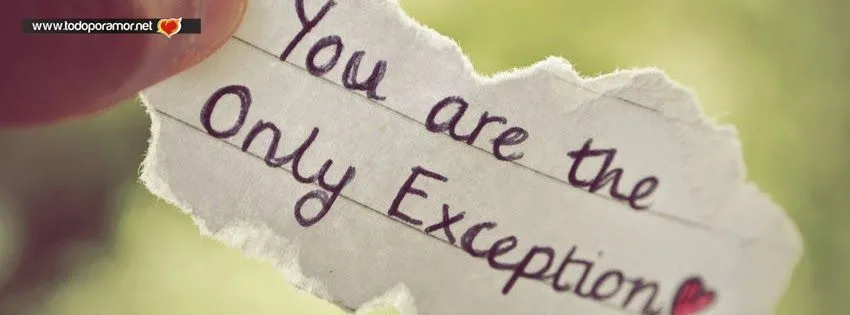 www.todoporamor.net
You are the
Only Exception